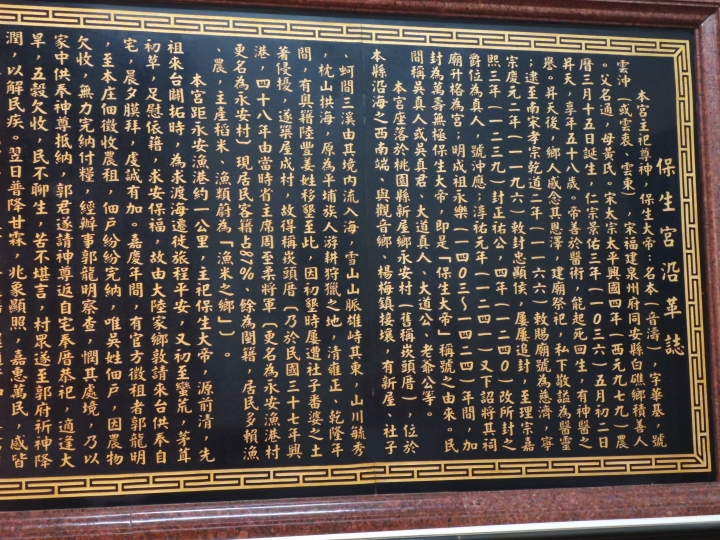 保生宮沿革誌
本宮主祀尊神，保生大帝：名本（音濤），字華基，號
雲沖，或雲衷、雲東），宋福建泉州府同安縣白礁鄉積善人
。父名通，母黃氏。宋太宗太平興國四年，西元九七九）農
曆三月十五日誕生，仁宗景祐三年（一○三六）五月初二日
昇天，享年五十八歲。帝善於醫術，能起死回生，有神醫之
譽。昇天後，鄉人感念其恩澤，建廟祭祀，私下敬謚為醫靈
；逮至南宋孝宗乾道二年（一一六六）敕賜廟號為慈濟，寧
宗慶元二年（一一九六）敕封忠顯侯，屢屢追封，至理宗嘉
熙三年（一二三九）封正祐公，四年（一二四○）改所封之
爵位為真人，號沖應；淳祐元年（一二四一）又下詔將其祠
廟升格為宮；明成祖永樂（一四○三～一四二四）年間，加
封為萬壽無極保生大帝，即是「保生大帝」稱號之由來。民
間稱吳真人或吳真君、大道真人、大道公、老爺公等。
本宮座落於桃園縣新屋鄉永安村（舊稱崁頭厝），位於
本縣沿海之西南端，與觀音鄉、楊梅鎮接壤，有新屋、社子
、蚵間三溪由其境內流入海，雪山山脈雄峙其東，山川毓秀
，枕山拱海，原為平埔族人游耕狩獵之地，清雍正、乾隆年
間，有粵籍陸豐姜姓移墾至此，因初墾時屢遭社子番婆之土
著侵擾，遂築屋成村，故得稱崁頭厝（乃於民國三十七年興
港，四十八年由當時省主席周至柔將軍（更名為永安漁港村
更名為永安村）現居民客籍占87%、餘為閩籍，居民多賴漁
、農，主產稻米、漁類尉為「漁米之鄉」）。
本宮距永安漁港約一公里，主祀保生大帝，源前清，先
祖來台闢拓時，為求渡海遷徙旅程平安，又初至蠻荒，茅茸
初草，足慰依籍，求安保福，故由大陸家鄉敦請來台供奉自
宅，晨夕膜拜，虔誠有加。嘉慶年間，有官方徵租者郭龍明
，至本庄佃徵收農租，佃戶紛紛完納，唯吳姓佃戶，因農物
欠收，無力完納付糧，經辦事郭龍明察查，憫其處境，乃以
家中供奉神尊抵納，郭君遂請神尊返自宅奉厝恭祀，適逢大
旱，五穀欠收，民不聊生，苦不堪言，村眾遂至郭府祈神降
潤，以解民疾。翌日普隆甘霖，兆象顯照，嘉惠萬民，咸皆